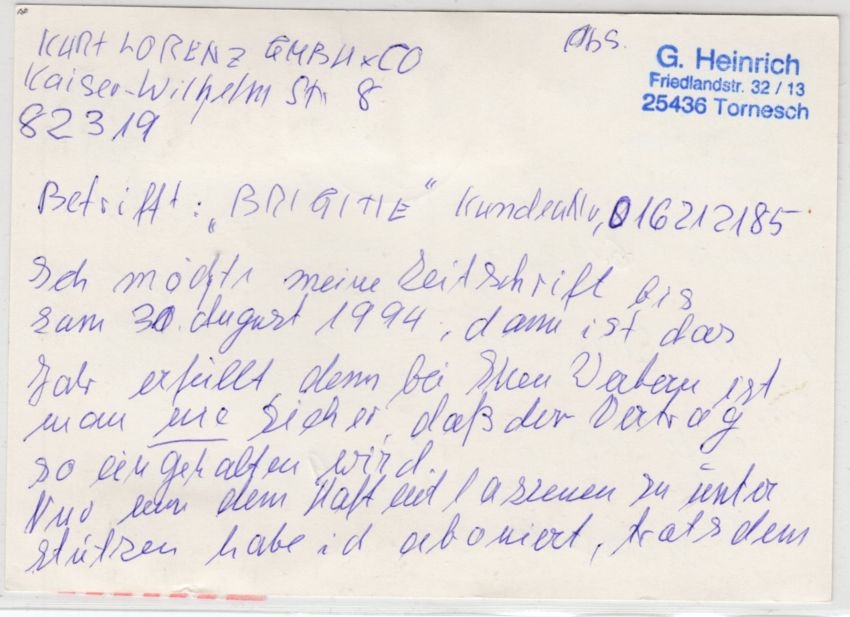 KURT LORENZ GMBH x CO
Kaiser-Wilhelm Str 8
82319
Abs.
G. Heinrich
Friedlandstr. 32 / 13
25436 Tornesch
Betrifft: „BRIGITTE“ Kundennr, 016212185
Ich möchte meine Zeitschrift bis
zum 30. August 1994, dann ist das
Jahr erfüllt, denn bei Ihren Werbern ist
man nie sicher, daß der Vertrag
so eingehalten wird.
Nur um dem Haftentlassenen zu unter
stützen habe ich aboniert, trotzdem